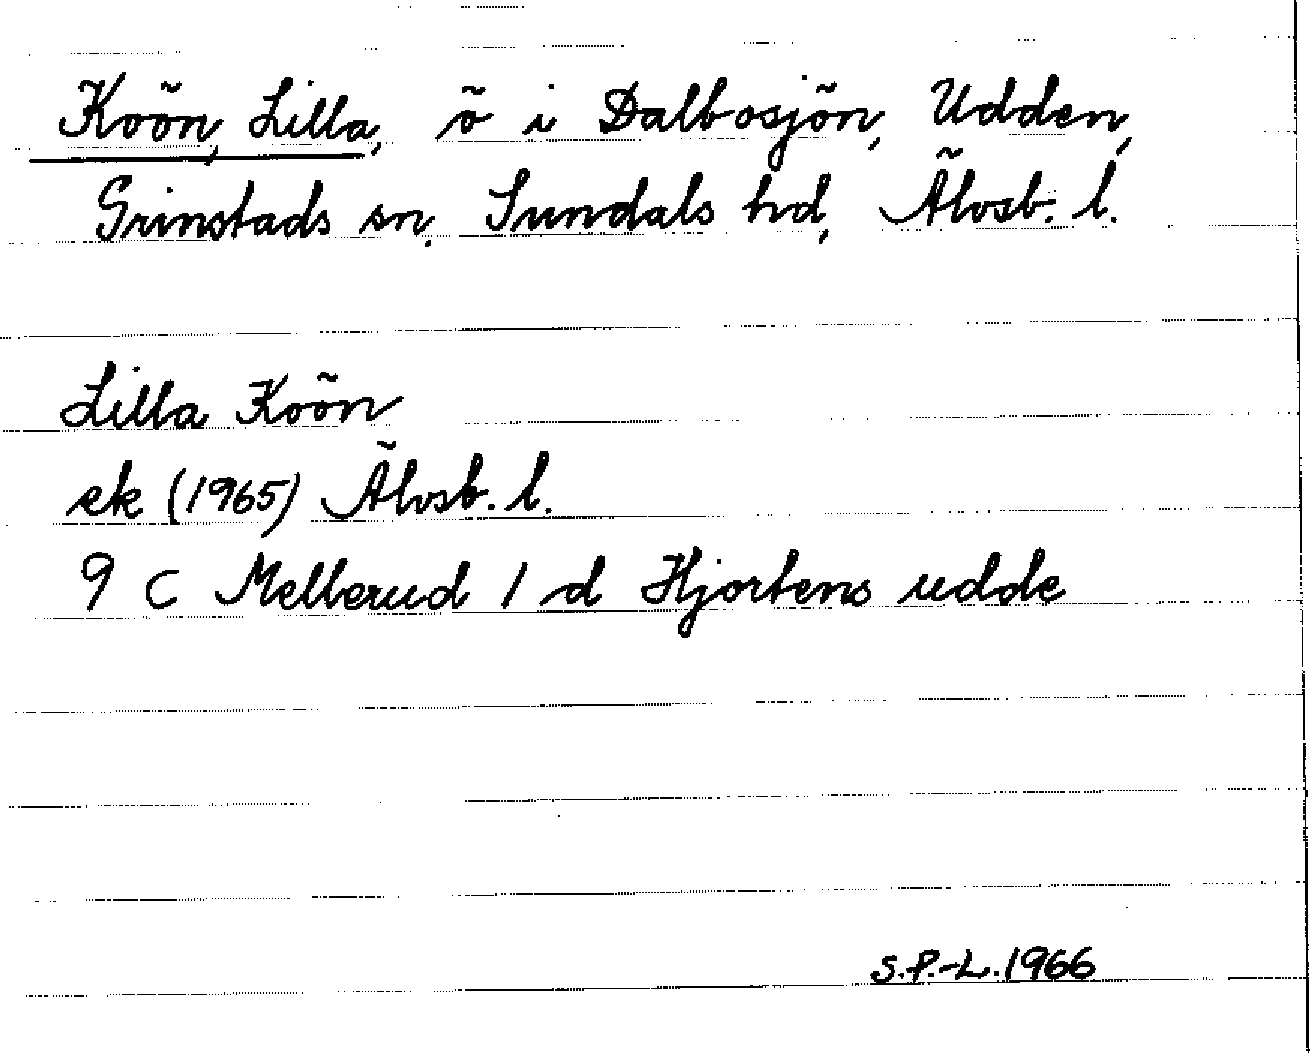 Koön, Lilla, ö i Dalbosjön, Udden,
Grinstads sn, Sundals hd, Älvsb. l.
Lilla Koön
ek (1965) Älvsb. l.
9 C Mellerud 1 d Hjortens udde
S.P.-L. 1966